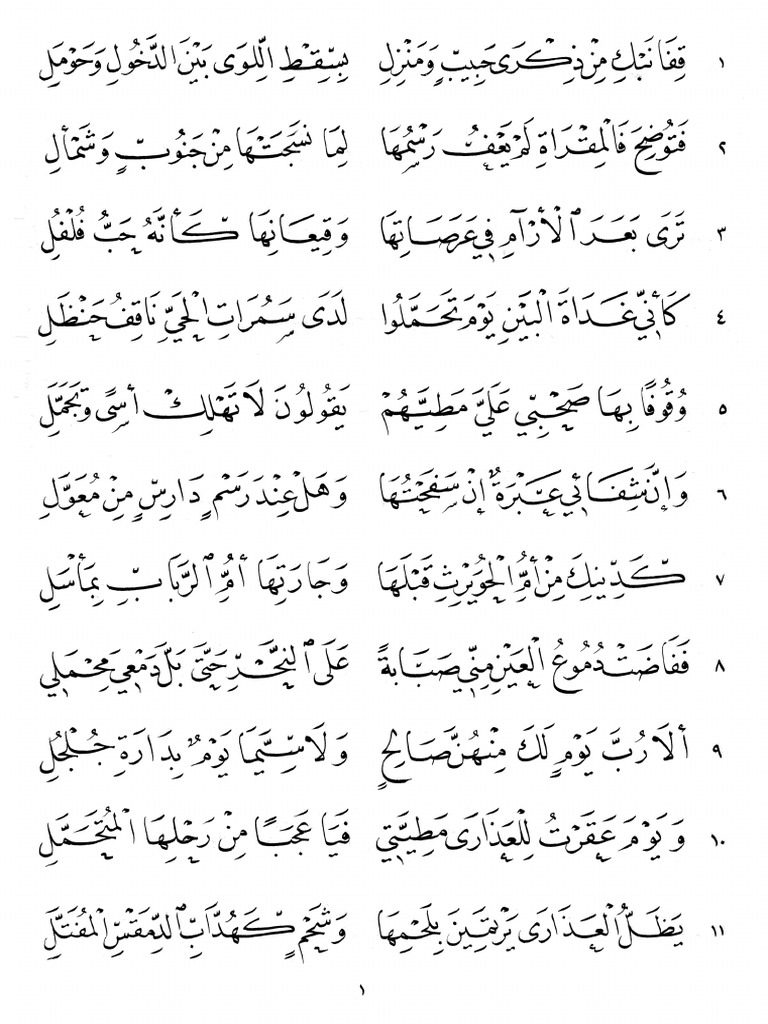 ١ قِفَا نَبْكِ مِنْ ذِكْرَى حَبِيبٍ وَمَنْزِلِ بِسِقْطِ اللِّوَى بَيْنَ الدَّخُولِ وَحَوْمَلِ
٢ فَتُوضِحَ فَالْمِقْرَاةِ لَمْ يَعْفُ رَسْمُهَا لِمَا نَسَجَتْهَا مِنْ جَنُوبٍ وَشَمْأَلِ
٣ تَرَى بَعَرَ ٱلْأَرْآمِ فِي عَرَصَاتِهَا وَقِيعَانِهَا كَأَنَّهُ حَبُّ فُلْفُلِ
٤ كَأَنِّي غَدَاةَ الْبَيْنِ يَوْمَ تَحَمَّلُوا لَدَى سَمُرَاتِ الْحَيِّ نَاقِفُ حَنْظَلِ
٥ وُقُوفًا بِهَا صَحْبِي عَلَيَّ مَطِيَّهُمْ يَقُولُونَ لَا تَهْلِكْ أَسًى وَتَجَمَّلِ
٦ وَإِنَّ شِفَائِي عَبْرَةٌ إِنْ سَفَحْتُهَا وَهَلْ عِنْدَ رَسْمٍ دَارِسٍ مِنْ مُعَوَّلِ
٧ كَدِينِكَ مِنْ أُمِّ الْحُوَيْرِثِ قَبْلَهَا وَجَارَتِهَا أُمِّ ٱلرَّبَابِ بِمَأْسَلِ
٨ فَفَاضَتْ دُمُوعُ الْعَيْنِ مِنِّي صَبَابَةً عَلَى ٱلنَّحْرِ حَتَّى بَلَّ دَمْعِيَ مِحْمَلِي
٩ أَلَا رُبَّ يَوْمٍ لَكَ مِنْهُنَّ صَالِحٍ وَلَا سِيَّمَا يَوْمٌ بِدَارَةِ جُلْجُلِ
١٠ وَيَوْمَ عَقَرْتُ لِلْعَذَارَى مَطِيَّتِي فَيَا عَجَبًا مِنْ رَحْلِهَا الْمُتَحَمَّلِ
١١ يَظَلُّ الْعَذَارَى يَرْتَمِينَ بِلَحْمِهَا وَشَحْمٍ كَهُدَّابِ ٱلدِّمَقْسِ الْمُفَتَّلِ
١